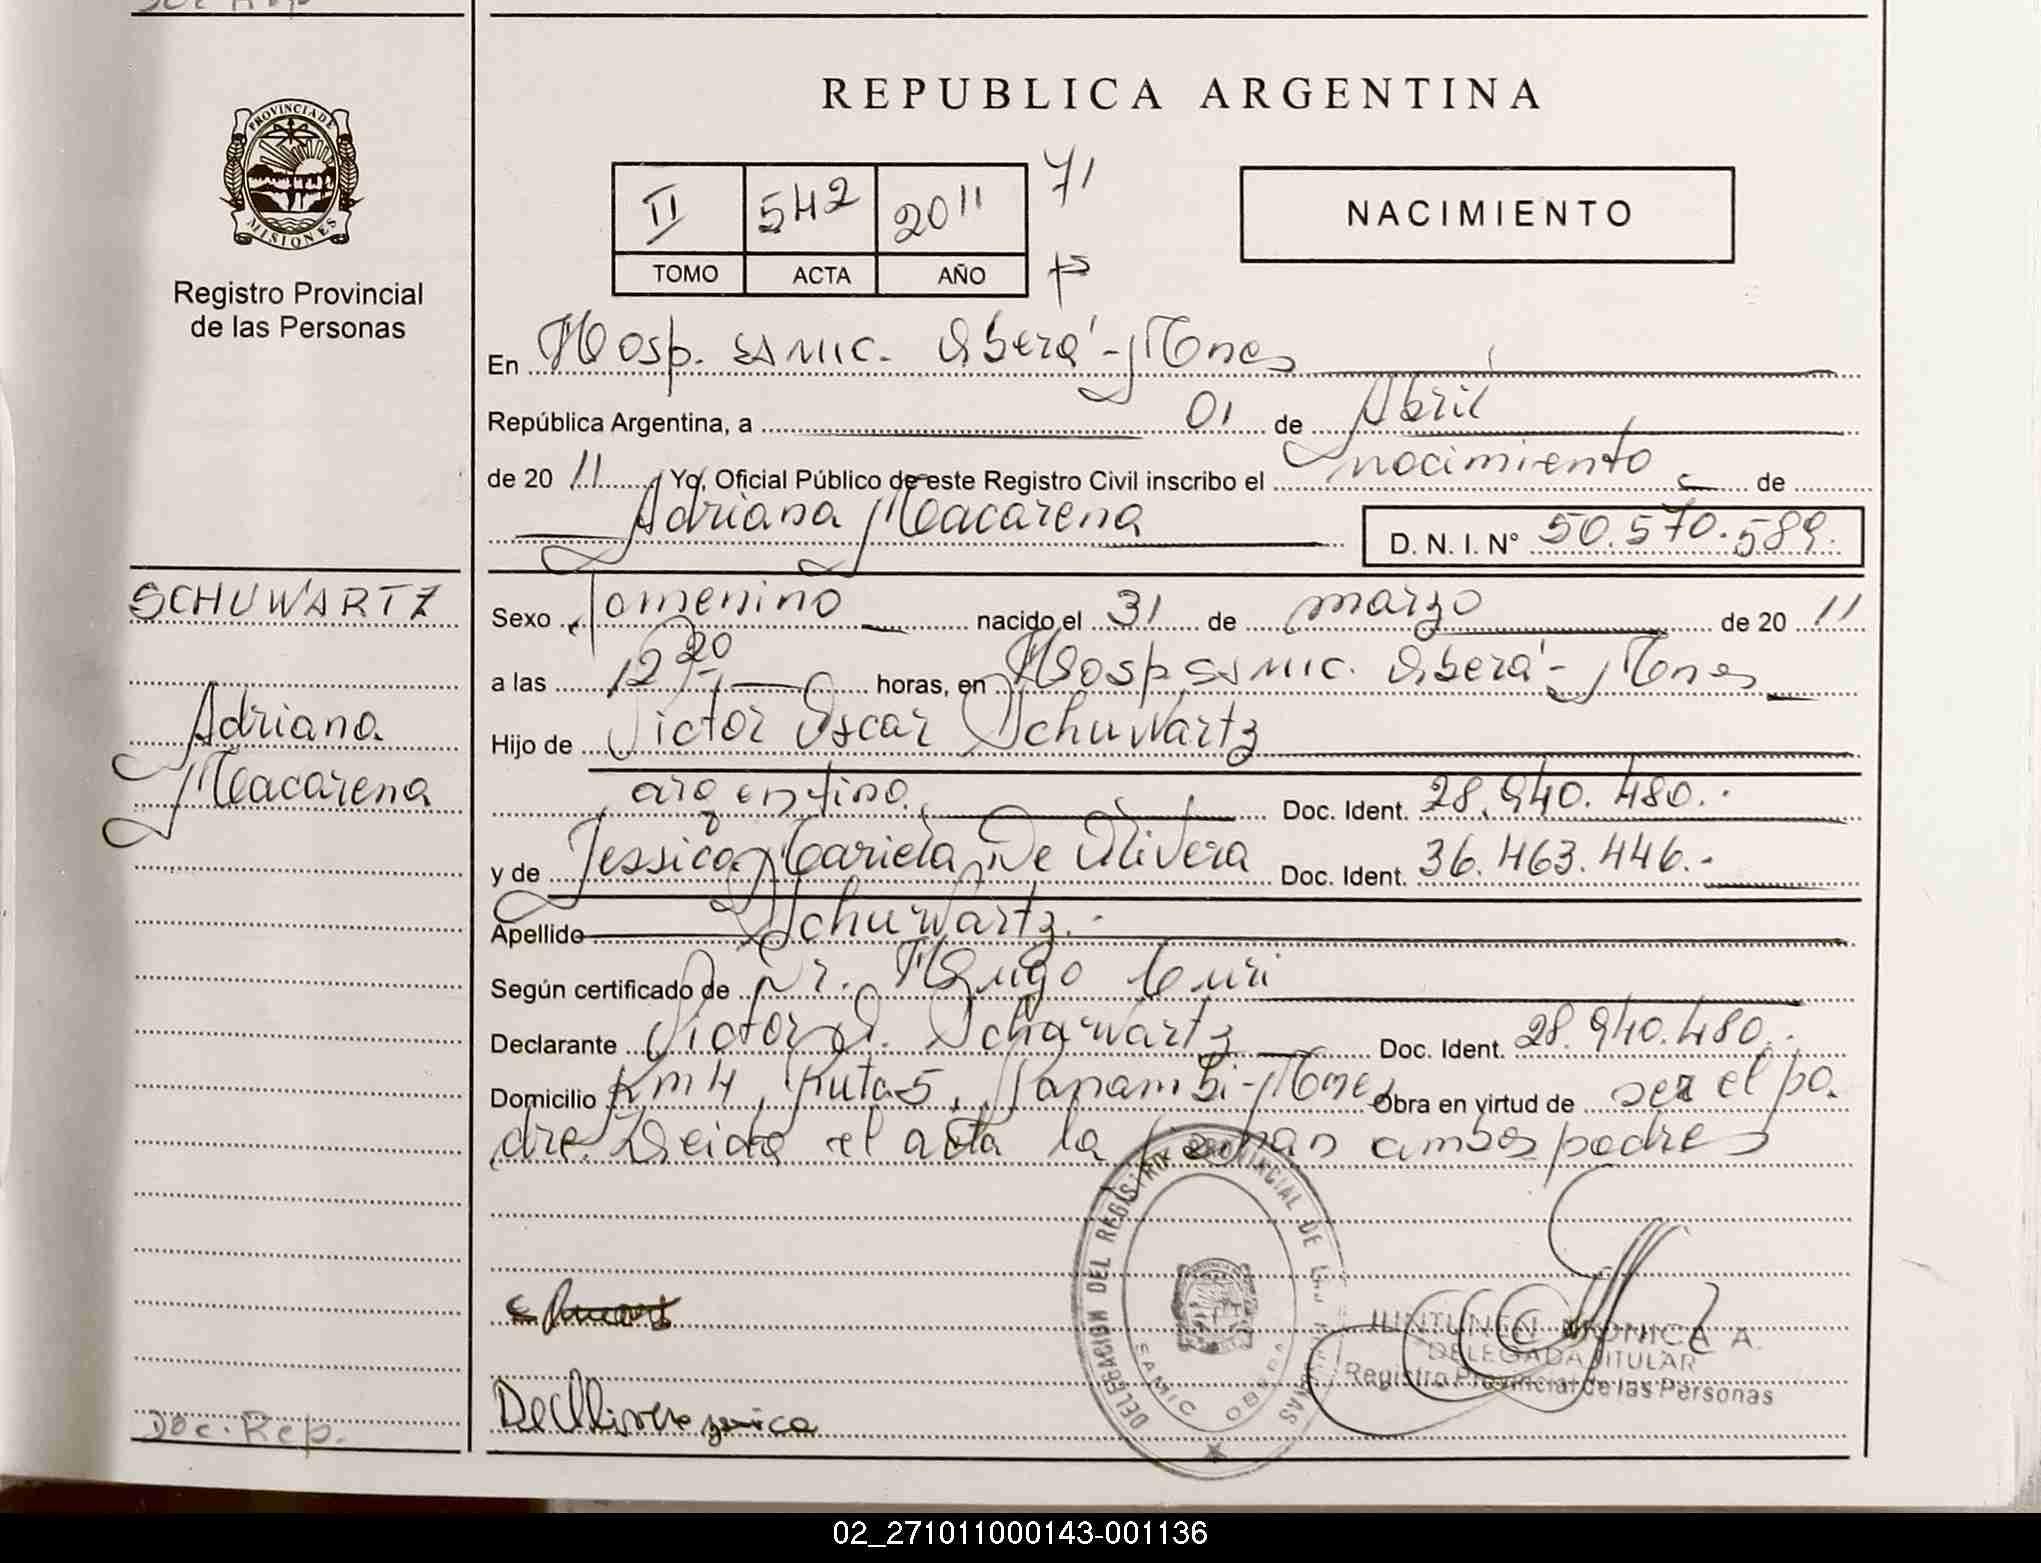 REPUBLICA ARGENTINA
PROVINCIA DE MISIONES
Registro Provincial
de las Personas
II 542 2011 71
TOMO ACTA AÑO
NACIMIENTO
En Hosp. SAMIC. Oberá - Mnes
República Argentina, a 01 de Abril
de 20 11 Yo, Oficial Público de este Registro Civil inscribo el nacimiento de
Adriana Macarena D. N. I. N° 50.570.589.
SCHUWARTZ
Adriana
Macarena
Sexo femenino nacido el 31 de marzo de 20 11
a las 12 20 horas, en Hosp SAMIC. Oberá - Mnes
Hijo de Victor Oscar Schuwartz
argentino. Doc. Ident. 28.940.480.-
y de Jessica Mariela De Olivera Doc. Ident. 36.463.446.-
Apellido Schuwartz.-
Según certificado de Dr. Hugo Curi
Declarante Victor O. Schuwartz Doc. Ident. 28.940.480.-
Domicilio Km 4, Ruta 5, Panambi - Mnes Obra en virtud de ser el pa
dre. Leida el acta la firman ambos padres
DELEGACION DEL REGISTRO PROVINCIAL DE LAS PERSONAS
SAMIC OBERA
De Olivera
JUNTUNEN MONICA A.
DELEGADA TITULAR
Registro Provincial de las Personas
Doc. Rep.
02_271011000143-001136